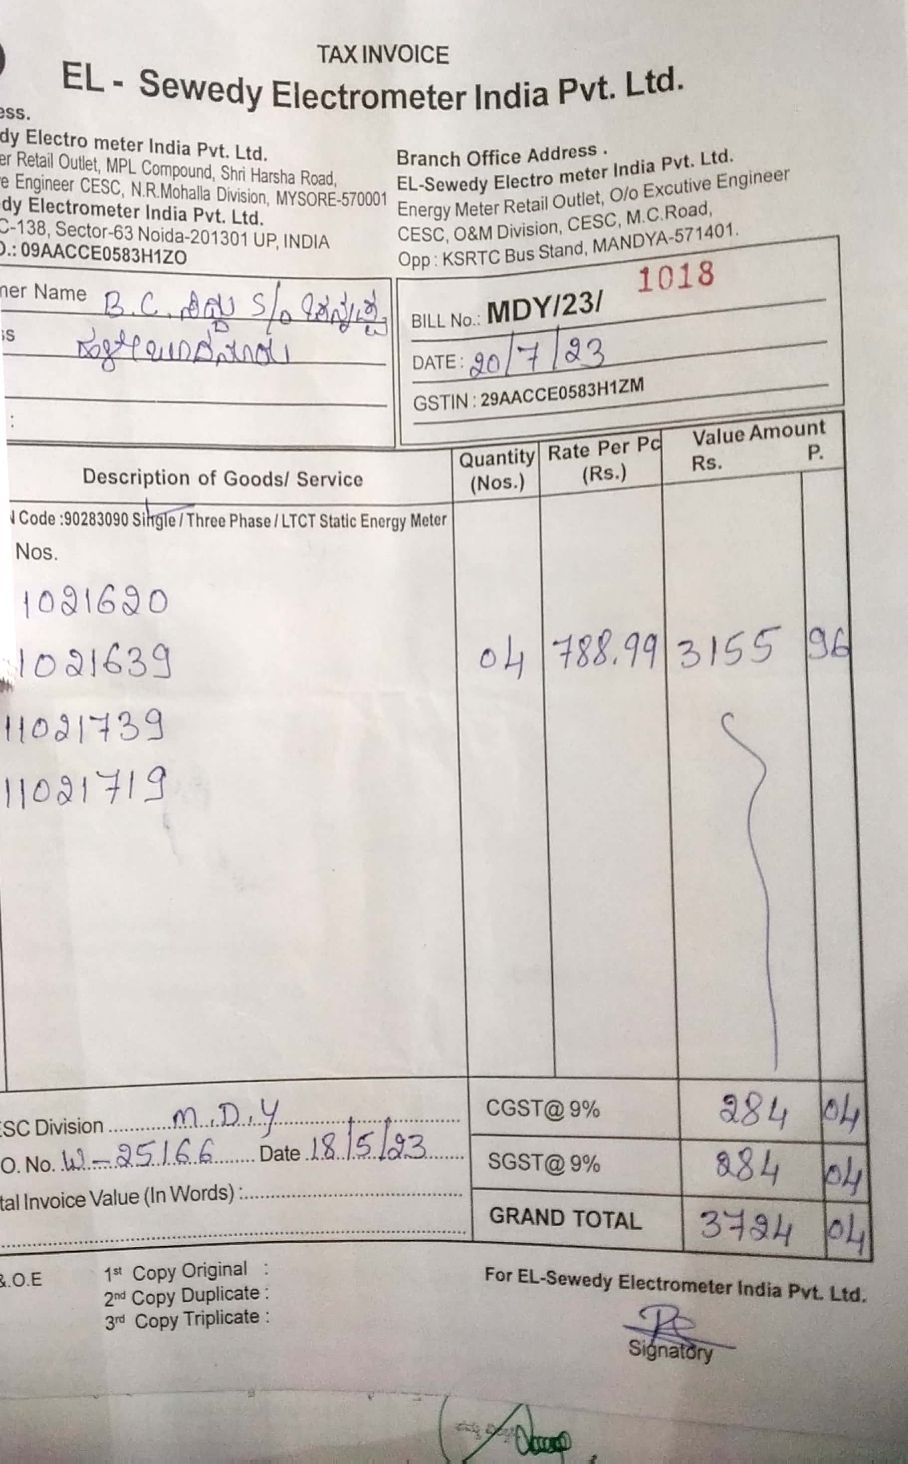 TAX INVOICE
EL - Sewedy Electrometer India Pvt. Ltd.
ess.
dy Electro meter India Pvt. Ltd.
er Retail Outlet, MPL Compound, Shri Harsha Road,
e Engineer CESC, N.R.Mohalla Division, MYSORE-570001
dy Electrometer India Pvt. Ltd.
C-138, Sector-63 Noida-201301 UP, INDIA
O.: 09AACCE0583H1ZO
Branch Office Address .
EL-Sewedy Electro meter India Pvt. Ltd.
Energy Meter Retail Outlet, O/o Excutive Engineer
CESC, O&M Division, CESC, M.C.Road,
Opp : KSRTC Bus Stand, MANDYA-571401.
mer Name B.C. S/o
ss
:
BILL No.: MDY/23/ 1018
DATE : 20/7/23
GSTIN : 29AACCE0583H1ZM
Description of Goods/ Service
Quantity (Nos.)
Rate Per Pc (Rs.)
Value Amount
Rs. P.
N Code :90283090 Single / Three Phase / LTCT Static Energy Meter
Nos.
1021620
1021639 04 788.99 3155 96
11021739
11021719
ESC Division .......... M.D.Y
O. No. W-25166 Date 18/5/23
tal Invoice Value (In Words) :
CGST@ 9% 284 04
SGST@ 9% 284 04
GRAND TOTAL 3724 04
&.O.E
1st Copy Original :
2nd Copy Duplicate :
3rd Copy Triplicate :
For EL-Sewedy Electrometer India Pvt. Ltd.
Signatory